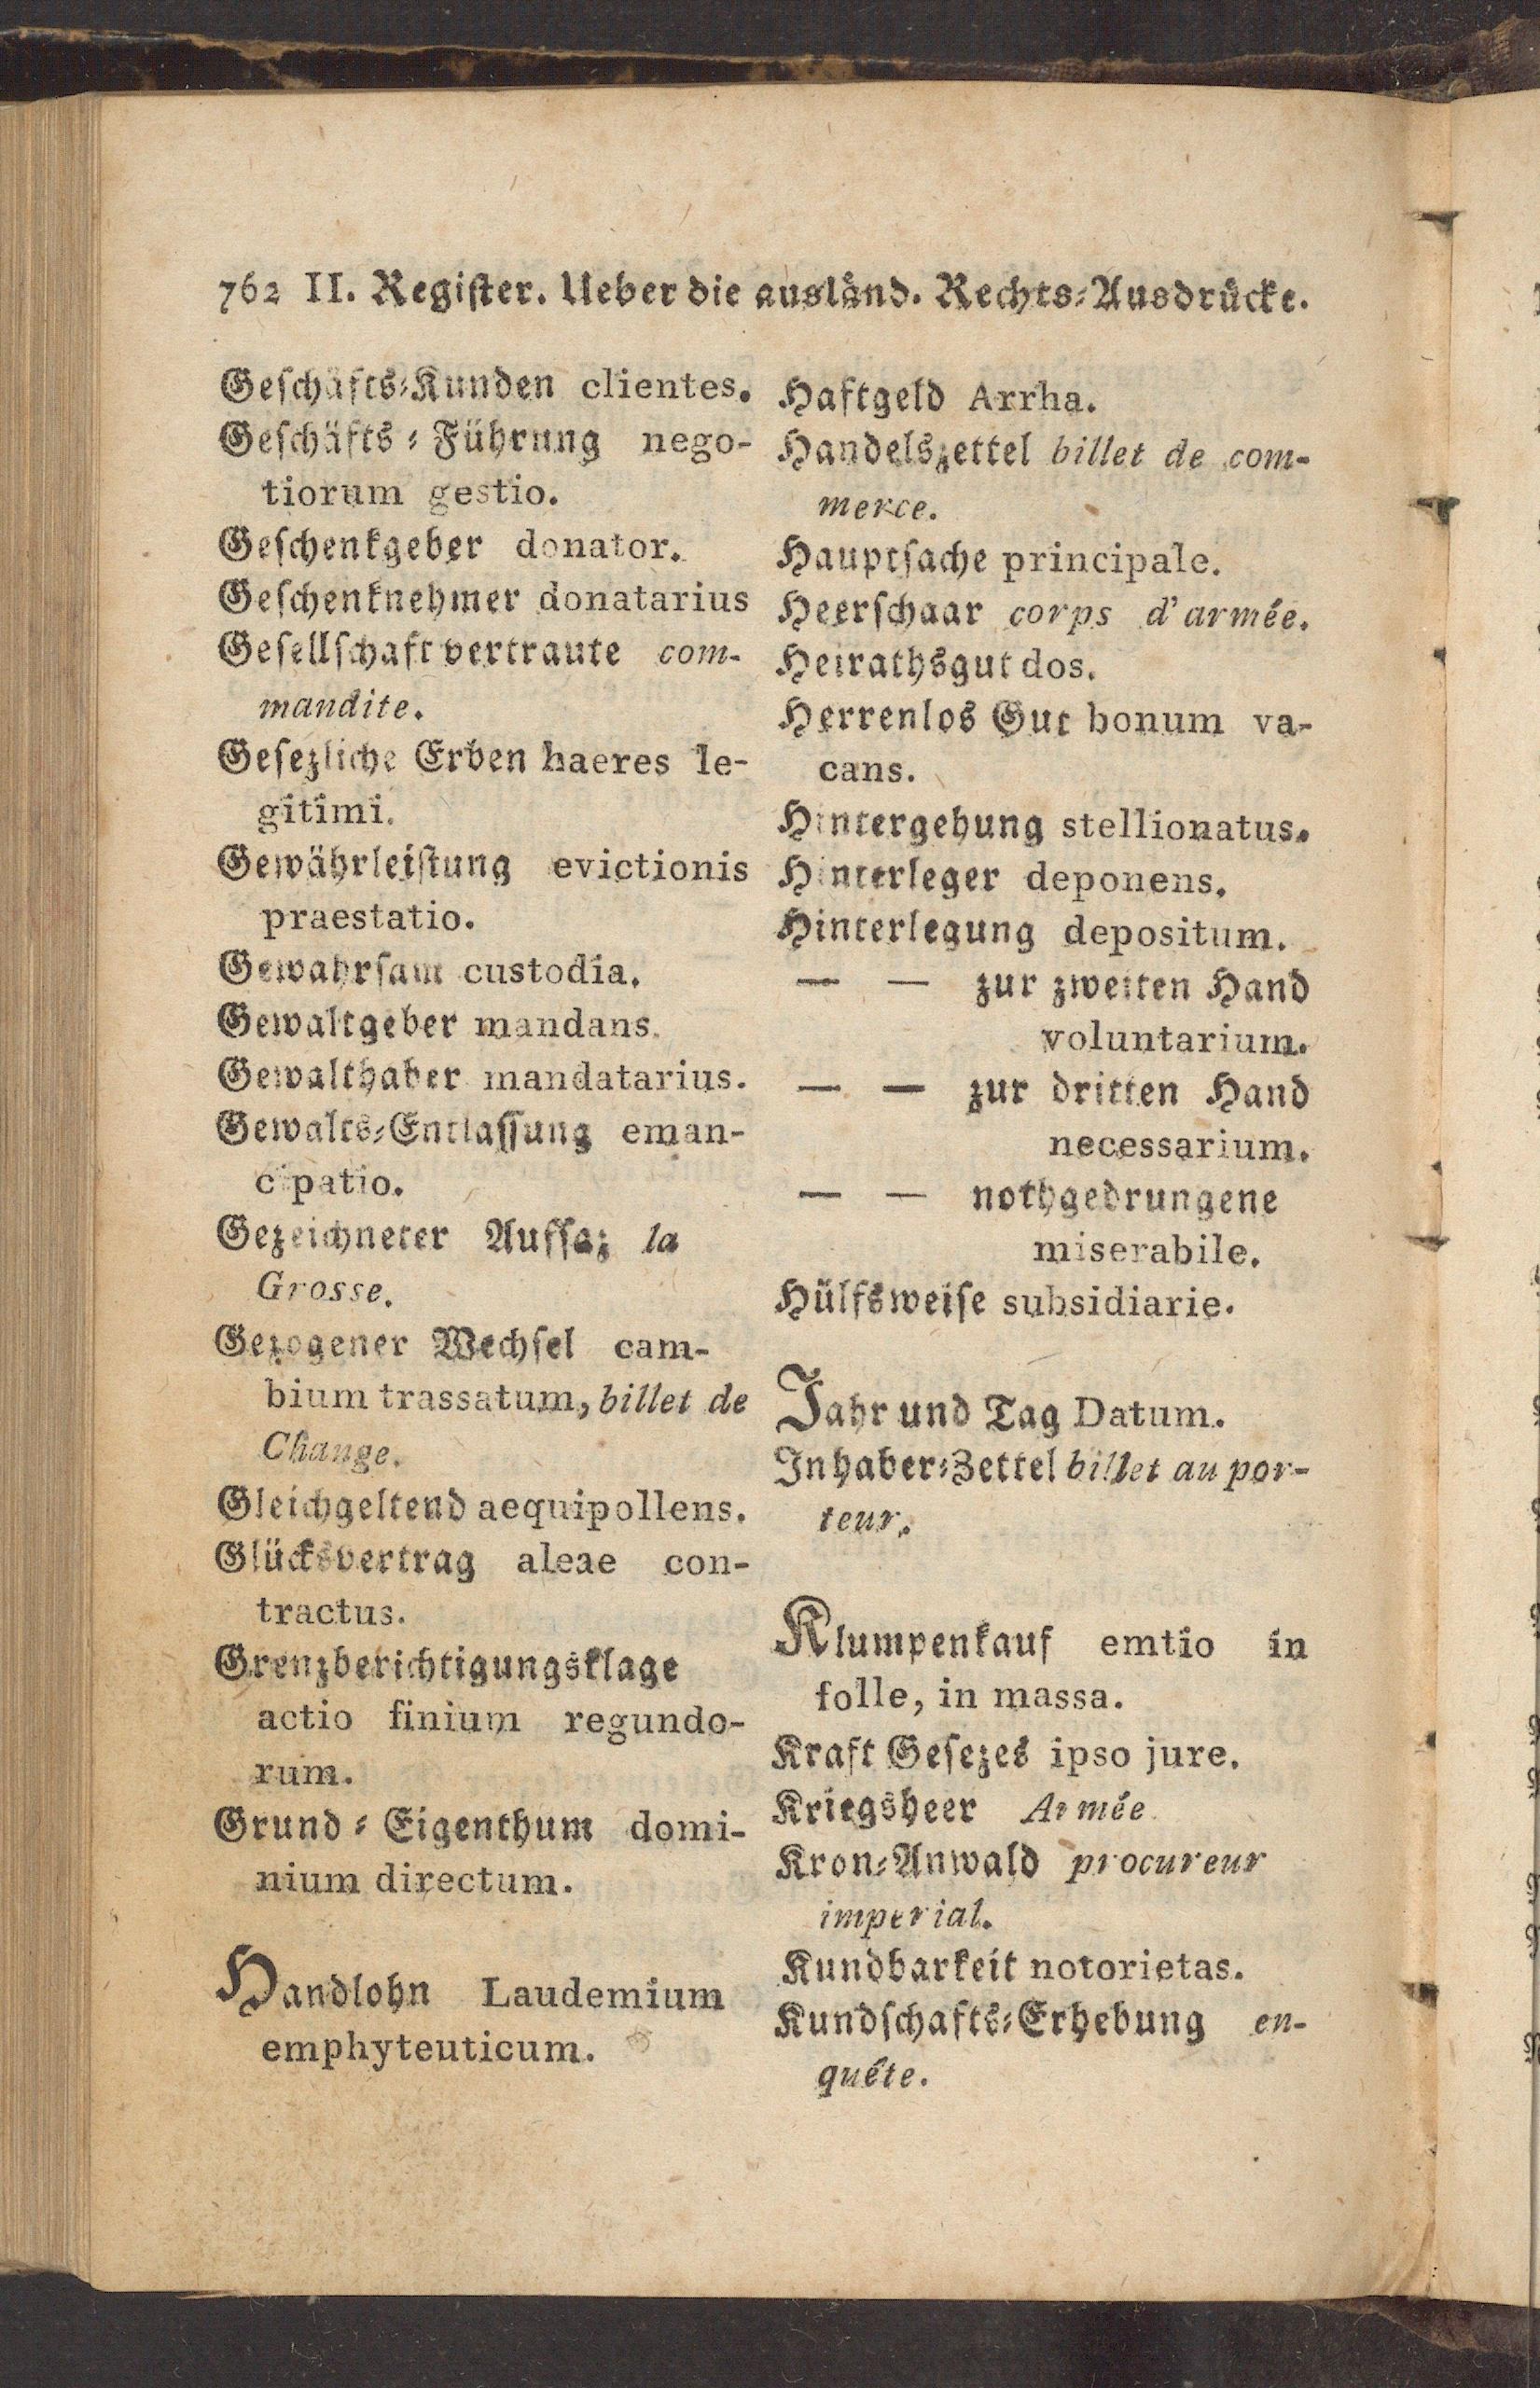 762 II. Regiſter. Ueber die ausländ. Rechts-Ausdrücke.
Geſchäfts-Kunden clientes.
Geſchäfts-Führung nego-
tiorum gestio.
Geſchenkgeber donator.
Geſchenknehmer donatarius
Geſellſchaft vertraute com-
mandite.
Geſezliche Erben haeres le-
gitimi.
Gewährleiſtung evictionis
praestatio.
Gewahrſam custodia.
Gewaltgeber mandans.
Gewalthaber mandatarius.
Gewalts-Entlaſſung eman-
cipatio.
Gezeichneter Aufſaz la
Grosse.
Gezogener Wechſel cam-
bium trassatum, billet de
Change.
Gleichgeltend aequipollens.
Glücksvertrag aleae con-
tractus.
Grenzberichtigungsklage
actio finium regundo-
rum.
Grund-Eigenthum domi-
nium directum.
Handlohn Laudemium
emphyteuticum.
Haftgeld Arrha.
Handelszettel billet de com-
merce.
Hauptſache principale.
Heerſchaar corps d'armée.
Heirathsgut dos.
Herrenlos Gut bonum va-
cans.
Hintergehung stellionatus.
Hinterleger deponens.
Hinterlegung depositum.
— — zur zweiten Hand
voluntarium.
— — zur dritten Hand
necessarium.
— — nothgedrungene
miserabile.
Hülfsweiſe subsidiarie.
Jahr und Tag Datum.
Inhaber-Zettel billet au por-
teur.
Klumpenkauf emtio in
folle, in massa.
Kraft Geſezes ipso jure.
Kriegsheer Armée
Kron-Anwald procureur
imperial.
Kundbarkeit notorietas.
Kundſchafts-Erhebung en-
quéte.